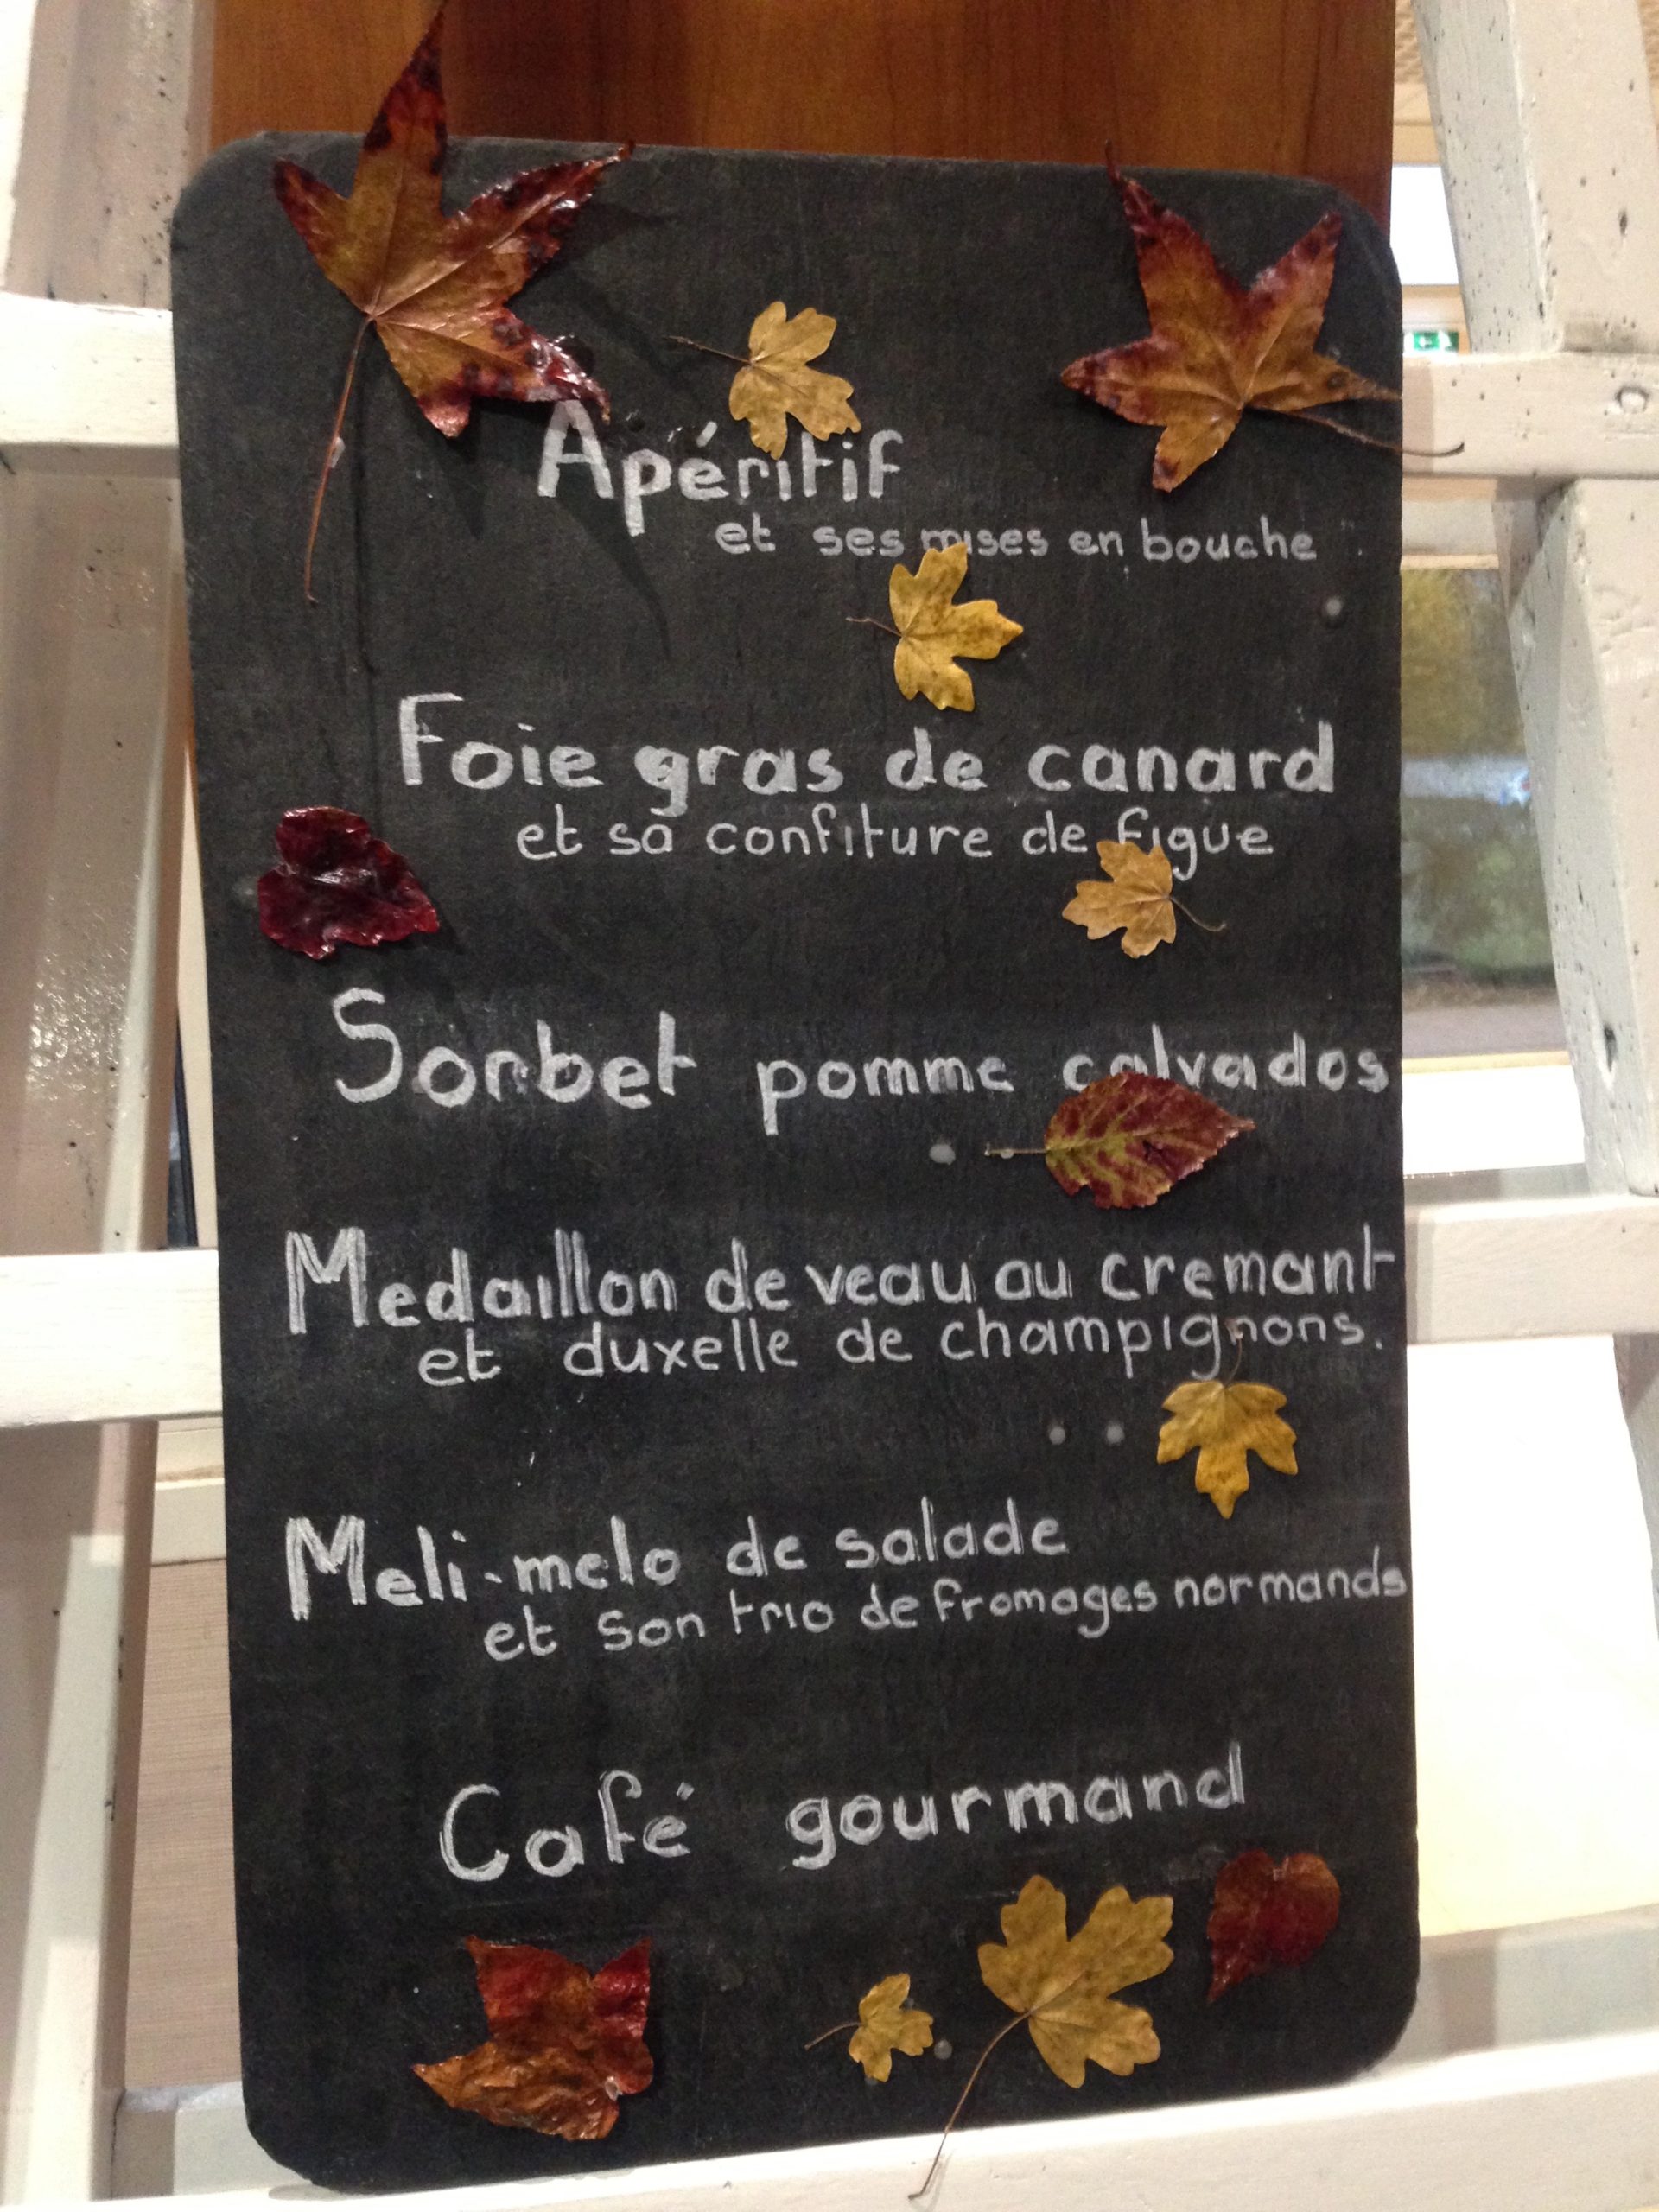 Apéritif
et ses mises en bouche
Foie gras de canard
et sa confiture de figue
Sorbet pomme calvados
Medaillon de veau au cremant
et duxelle de champignons.
Meli-melo de salade
et son trio de fromages normands
Café gourmand